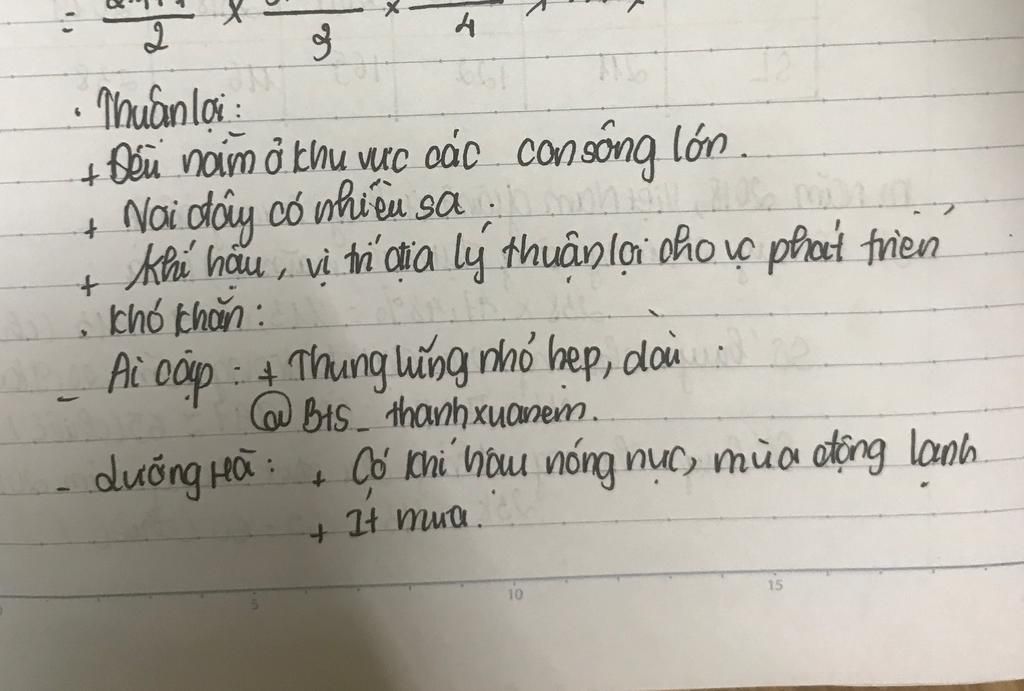 = 2 × 3 × 4 ×
. Thuận lợi:
+ Đều nằm ở khu vực các con sông lớn.
+ Nơi đây có nhiều sa.
+ Khí hậu, vị trí địa lý thuận lợi cho vc phát triển
. Khó khăn:
- Ai cập: + Thung lũng nhỏ hẹp, dài
@Bts_thanhxuanem.
- Lưỡng Hà: + Có khí hậu nóng nực, mùa động lạnh
+ Ít mưa.
5 10 15